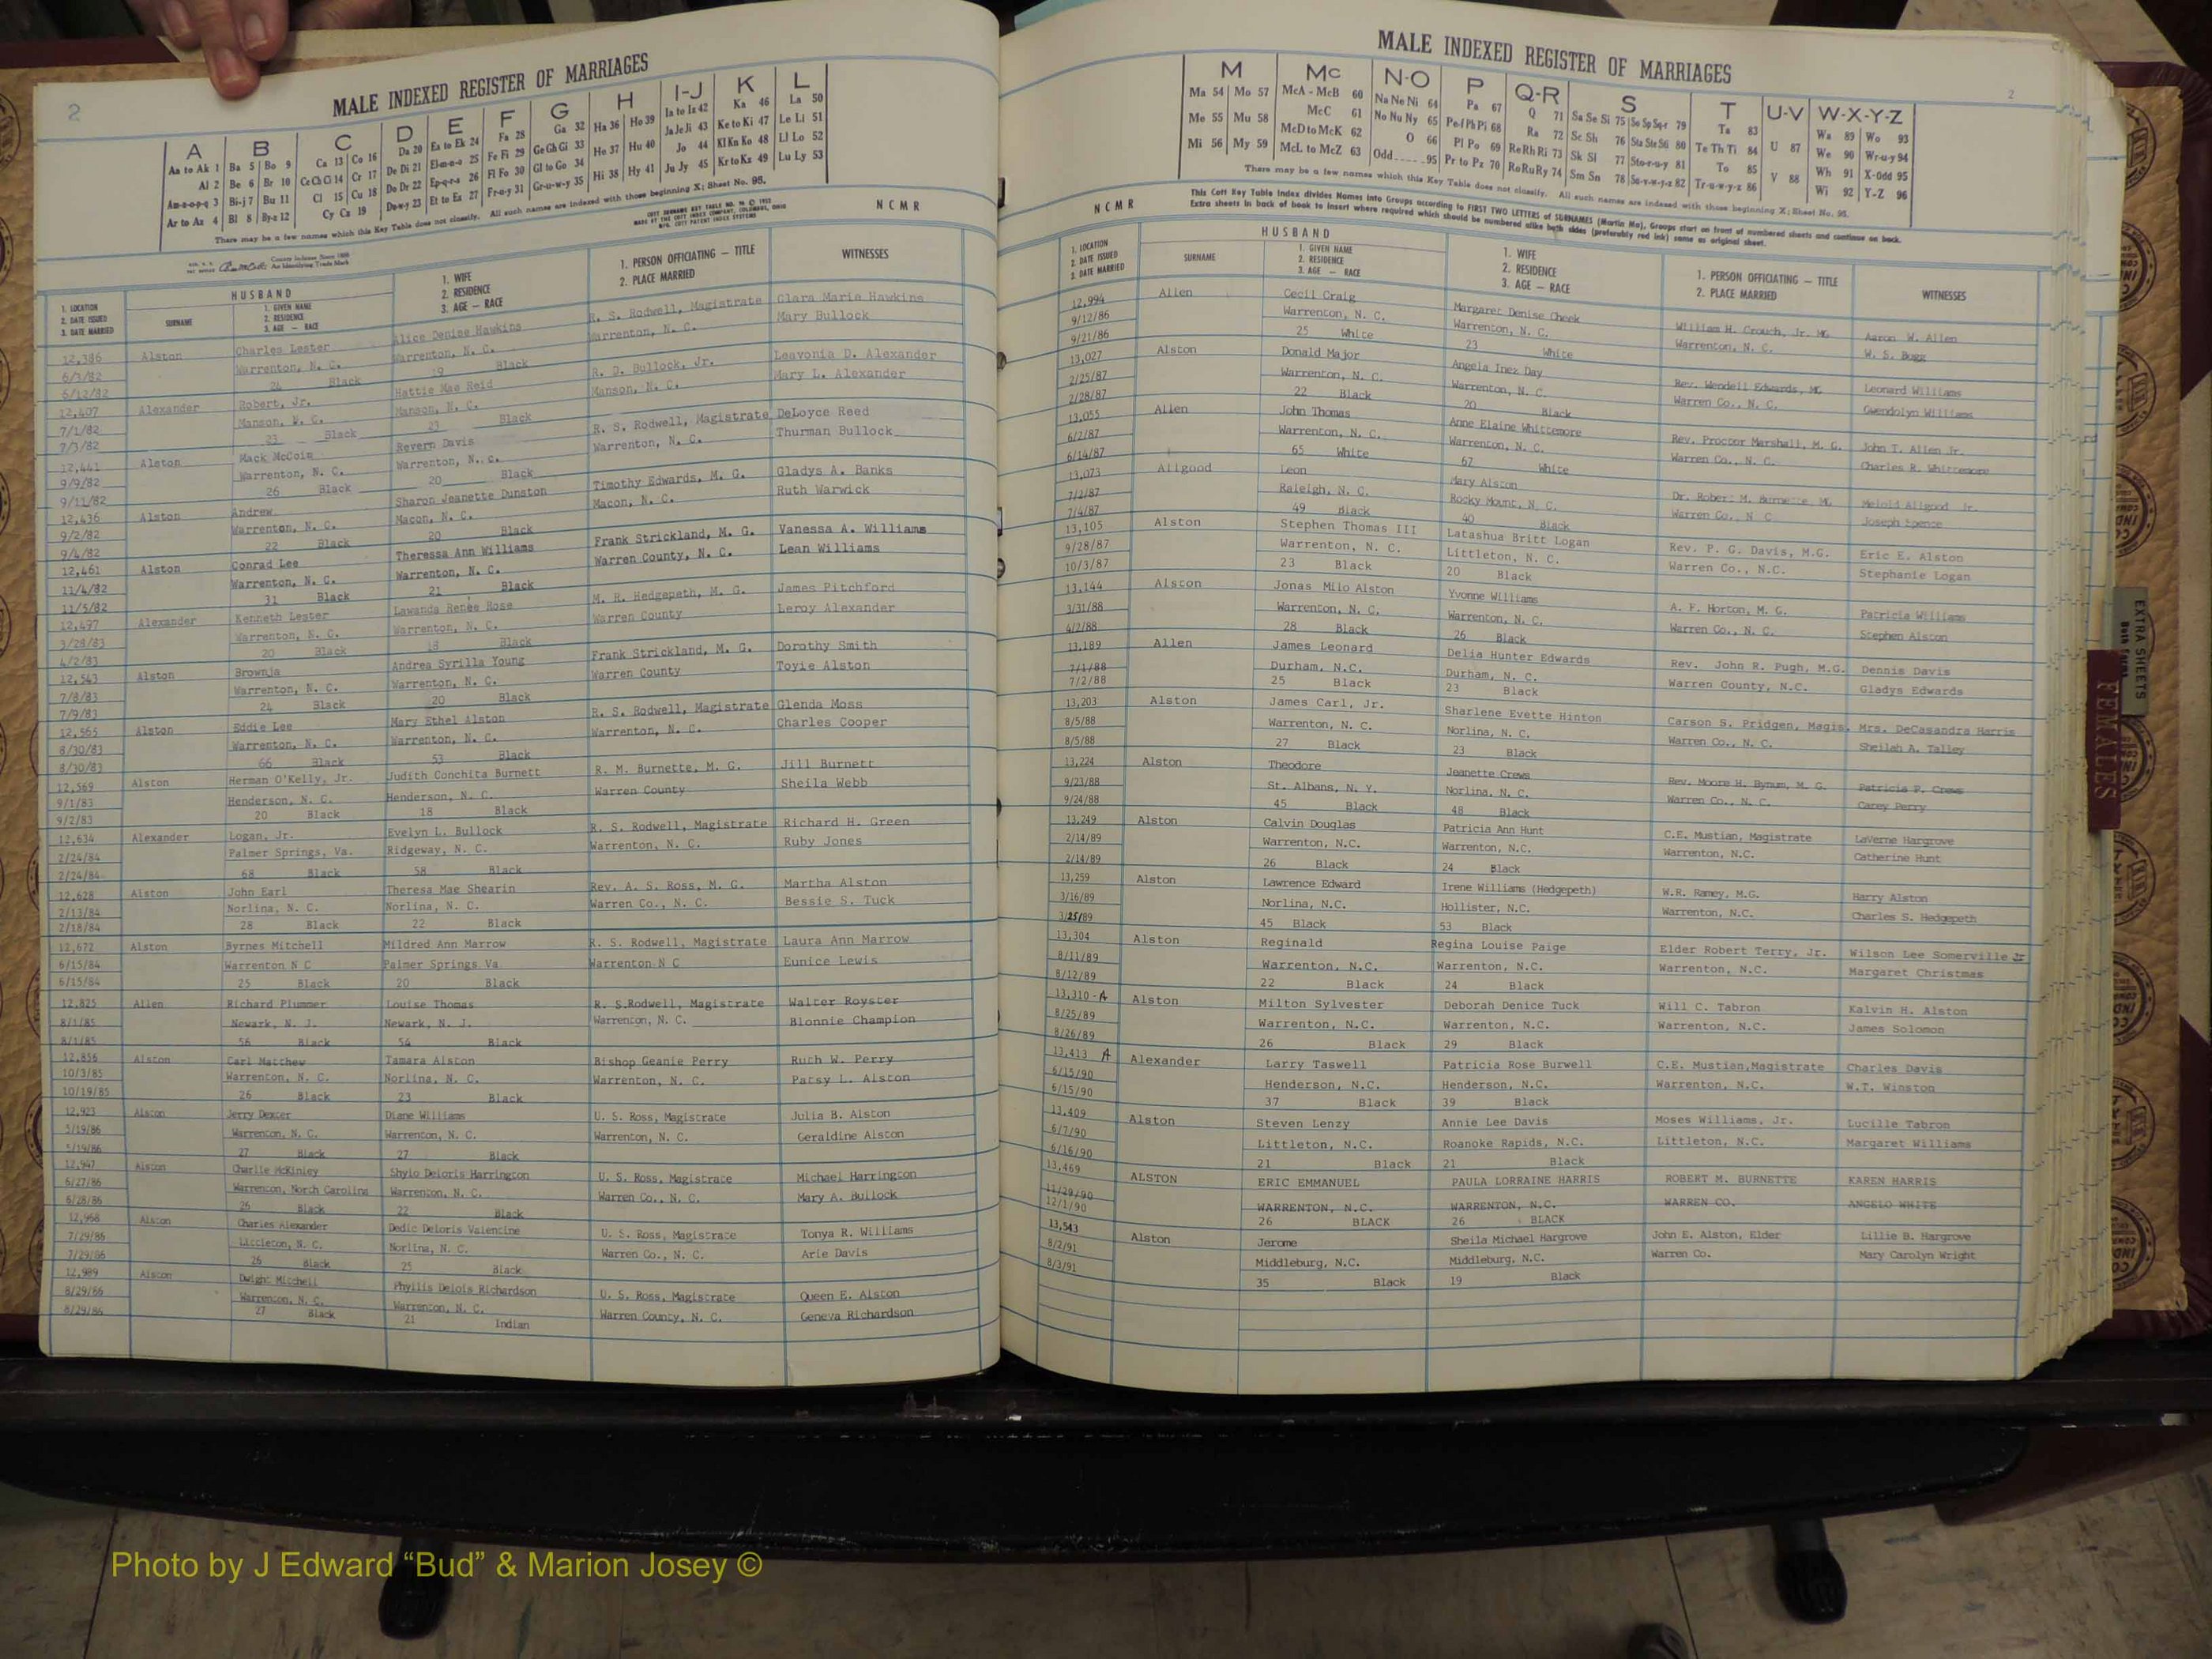 2
MALE INDEXED REGISTER OF MARRIAGES
A B C D E F G H I-J K L
Aa to Ak 1 Ba 5 Bo 9 Ca 13 Co 16 Da 20 Ea to Ek 24 Fa 28 Ga 32 Ha 36 Ho 39 Ia to Iz 42 Ka 46 La 50
Al 2 Be 6 Br 10 Ce Ch Ci 14 Cr 17 De Di 21 El-m-n-o 25 Fe Fi 29 Ge Gh Gi 33 He 37 Hu 40 Ja Je Ji 43 Ke to Ki 47 Le Li 51
Am-n-o-p-q 3 Bi-j 7 Bu 11 Cl 15 Cu 18 Do Dr 22 Ep-q-r-s 26 Fl Fo 30 Gl to Go 34 Hi 38 Hy 41 Jo 44 Kl Kn Ko 48 Ll Lo 52
Ar to Az 4 Bl 8 By-z 12 Cy Cz 19 Du-w-y 23 Et to Ez 27 Fr-u-y 31 Gr-u-w-y 35 Ju Jy 45 Kr to Kz 49 Lu Ly 53
There may be a few names which this Key Table does not classify. All such names are indexed with those beginning X; Sheet No. 95.
N C M R
1. LOCATION
2. DATE ISSUED
3. DATE MARRIED
HUSBAND
SURNAME
1. GIVEN NAME
2. RESIDENCE
3. AGE — RACE
1. WIFE
2. RESIDENCE
3. AGE — RACE
1. PERSON OFFICIATING — TITLE
2. PLACE MARRIED
WITNESSES
12,386 Alston Charles Lester Alice Denise Hawkins R. S. Rodwell, Magistrate Clara Marie Hawkins
6/3/82 Warrenton, N. C. Warrenton, N. C. Warrenton, N. C. Mary Bullock
6/12/82 24 Black 19 Black
12,407 Alexander Robert, Jr. Hattie Mae Reid R. D. Bullock, Jr. Leavonia D. Alexander
7/1/82 Manson, N. C. Manson, N. C. Manson, N. C. Mary L. Alexander
7/3/82 23 Black 23 Black
12,441 Alston Mack McCoin Revern Davis R. S. Rodwell, Magistrate DeLoyce Reed
9/9/82 Warrenton, N. C. Warrenton, N. C. Warrenton, N. C. Thurman Bullock
9/11/82 26 Black 20 Black
12,436 Alston Andrew Sharon Jeanette Dunston Timothy Edwards, M. G. Gladys A. Banks
9/2/82 Warrenton, N. C. Macon, N. C. Macon, N. C. Ruth Warwick
9/4/82 22 Black 20 Black
12,461 Alston Conrad Lee Theressa Ann Williams Frank Strickland, M. G. Vanessa A. Williams
11/4/82 Warrenton, N. C. Warrenton, N. C. Warren County, N. C. Lean Williams
11/5/82 31 Black 21 Black
12,497 Alexander Kenneth Lester Lawanda Renee Rose M. H. Hedgepeth, M. G. James Pitchford
3/28/83 Warrenton, N. C. Warrenton, N. C. Warren County Leroy Alexander
4/2/83 20 Black 18 Black
12,543 Alston Brownie Andrea Syrilla Young Frank Strickland, M. G. Dorothy Smith
7/8/83 Warrenton, N. C. Warrenton, N. C. Warren County Toyie Alston
7/9/83 24 Black 20 Black
12,565 Alston Eddie Lee Mary Ethel Alston R. S. Rodwell, Magistrate Glenda Moss
8/30/83 Warrenton, N. C. Warrenton, N. C. Warrenton, N. C. Charles Cooper
8/30/83 66 Black 53 Black
12,569 Alston Herman O'Kelly, Jr. Judith Conchita Burnett R. M. Burnette, M. G. Jill Burnett
9/1/83 Henderson, N. C. Henderson, N. C. Warren County Sheila Webb
9/2/83 20 Black 18 Black
12,634 Alexander Logan, Jr. Evelyn L. Bullock R. S. Rodwell, Magistrate Richard H. Green
2/24/84 Palmer Springs, Va. Ridgeway, N. C. Warrenton, N. C. Ruby Jones
2/24/84 68 Black 58 Black
12,628 Alston John Earl Theresa Mae Shearin Rev. A. S. Ross, M. G. Martha Alston
2/13/84 Norlina, N. C. Norlina, N. C. Warren Co., N. C. Bessie S. Tuck
2/18/84 28 Black 22 Black
12,672 Alston Byrnes Mitchell Mildred Ann Marrow R. S. Rodwell, Magistrate Laura Ann Marrow
6/15/84 Warrenton N C Palmer Springs Va Warrenton N C Eunice Lewis
6/15/84 25 Black 20 Black
12,825 Allen Richard Plummer Louise Thomas R. S.Rodwell, Magistrate Walter Royster
8/1/85 Newark, N. J. Newark, N. J. Warrenton, N. C. Blonnie Champion
8/1/85 56 Black 54 Black
12,856 Alston Carl Matthew Tamara Alston Bishop Geanie Perry Ruth W. Perry
10/3/85 Warrenton, N. C. Norlina, N. C. Warrenton, N. C. Patsy L. Alston
10/19/85 26 Black 23 Black
12,923 Alston Jerry Dexter Diane Williams U. S. Ross, Magistrate Julia B. Alston
5/19/86 Warrenton, N. C. Warrenton, N. C. Warrenton, N. C. Geraldine Alston
5/19/86 27 Black 27 Black
12,947 Alston Charlie McKinley Shylo Deloris Harrington U. S. Ross, Magistrate Michael Harrington
6/27/86 Warrenton, North Carolina Warrenton, N. C. Warren Co., N. C. Mary A. Bullock
6/28/86 26 Black 22 Black
12,968 Alston Charles Alexander Dedic Deloris Valentine U. S. Ross, Magistrate Tonya R. Williams
7/29/86 Littleton, N. C. Norlina, N. C. Warren Co., N. C. Arie Davis
7/29/86 26 Black 25 Black
12,989 Alston Dwight Mitchell Phyllis Delois Richardson U. S. Ross, Magistrate Queen E. Alston
8/29/86 Warrenton, N. C. Warrenton, N. C. Warren County, N. C. Geneva Richardson
8/29/86 27 Black 21 Indian
2
MALE INDEXED REGISTER OF MARRIAGES
M Mc N-O P Q-R S T U-V W-X-Y-Z
Ma 54 Mo 57 McA - McB 60 Na Ne Ni 64 Pa 67 Q 71 Sa Se Si 75 So Sp Sq-r 79 Ta 83 Wa 89 Wo 93
Me 55 Mu 58 McC 61 No Nu Ny 65 Pe-f Ph Pi 68 Ra 72 Sc Sh 76 Sta Ste Sti 80 Te Th Ti 84 U 87 We 90 Wr-u-y 94
Mi 56 My 59 McD to McK 62 O 66 Pl Po 69 Re Rh Ri 73 Sk Sl 77 Sto-r-u-y 81 To 85 Wh 91 X-Odd 95
McL to McZ 63 Odd 95 Pr to Pz 70 Ro Ru Ry 74 Sm Sn 78 Su-v-w-y-z 82 Tr-u-w-y-z 86 V 88 Wi 92 Y-Z 96
There may be a few names which this Key Table does not classify. All such names are indexed with those beginning X; Sheet No. 95.
This Cott Key Table Index divides Names into Groups according to FIRST TWO LETTERS of SURNAMES (Martin Ma). Groups start on front of numbered sheets and continue on back.
Extra sheets in back of book to insert where required which should be numbered alike both sides (preferably red ink) same as original sheet.
N C M R
1. LOCATION
2. DATE ISSUED
3. DATE MARRIED
HUSBAND
SURNAME
1. GIVEN NAME
2. RESIDENCE
3. AGE — RACE
1. WIFE
2. RESIDENCE
3. AGE — RACE
1. PERSON OFFICIATING — TITLE
2. PLACE MARRIED
WITNESSES
12,994 Allen Cecil Craig Margaret Denise Cheek William H. Crouch, Jr. MG Aaron W. Allen
9/12/86 Warrenton, N. C. Warrenton, N. C. Warrenton, N. C. W. S. Bugg
9/21/86 25 White 23 White
13,027 Alston Donald Major Angela Inez Day Rev. Wendell Edwards, MG Leonard Williams
2/25/87 Warrenton, N. C. Warrenton, N. C. Warren Co., N. C. Gwendolyn Williams
2/28/87 22 Black 20 Black
13,055 Allen John Thomas Anne Elaine Whittemore Rev. Proctor Marshall, M. G. John T. Allen Jr.
6/2/87 Warrenton, N. C. Warrenton, N. C. Warren Co., N. C. Charles R. Whittemore
6/14/87 65 White 67 White
13,073 Allgood Leon Mary Alston Dr. Robert M. Burnette, MG Allgood Jr.
7/2/87 Raleigh, N. C. Rocky Mount, N. C. Warren Co., N C Joseph Spence
7/4/87 49 Black 40 Black
13,105 Alston Stephen Thomas III Latashua Britt Logan Rev. P. G. Davis, M.G. Eric E. Alston
9/28/87 Warrenton, N. C. Littleton, N. C. Warren Co., N.C. Stephanie Logan
10/3/87 23 Black 20 Black
13,144 Alston Jonas Milo Alston Yvonne Williams A. F. Horton, M. G. Patricia Williams
3/31/88 Warrenton, N. C. Warrenton, N. C. Warren Co., N. C. Stephen Alston
4/2/88 28 Black 26 Black
13,189 Allen James Leonard Delia Hunter Edwards Rev. John R. Pugh, M.G. Dennis Davis
7/1/88 Durham, N.C. Durham, N. C. Warren County, N.C. Gladys Edwards
7/2/88 25 Black 23 Black
13,203 Alston James Carl, Jr. Sharlene Evette Hinton Carson S. Pridgen, Magis. Mrs. DeCasandra Harris
8/5/88 Warrenton, N. C. Norlina, N. C. Warren Co., N. C. Sheilah A. Talley
8/5/88 27 Black 23 Black
13,224 Alston Theodore Jeanette Crews Rev. Moore H. Bynum, M. G. Patricia P. Crews
9/23/88 St. Albans, N. Y. Norlina, N. C. Warren Co., N. C. Carey Perry
9/24/88 45 Black 48 Black
13,249 Alston Calvin Douglas Patricia Ann Hunt C.E. Mustian, Magistrate LaVerne Hargrove
2/14/89 Warrenton, N.C. Warrenton, N.C. Warrenton, N.C. Catherine Hunt
2/14/89 26 Black 24 Black
13,259 Alston Lawrence Edward Irene Williams (Hedgepeth) W.R. Ramey, M.G. Harry Alston
3/16/89 Norlina, N.C. Hollister, N.C. Warrenton, N.C. Charles S. Hedgepeth
3/25/89 45 Black 53 Black
13,304 Alston Reginald Regina Louise Paige Elder Robert Terry, Jr. Wilson Lee Somerville Jr
8/11/89 Warrenton, N.C. Warrenton, N.C. Warrenton, N.C. Margaret Christmas
8/12/89 22 Black 24 Black
13,310-A Alston Milton Sylvester Deborah Denice Tuck Will C. Tabron Kalvin H. Alston
8/25/89 Warrenton, N.C. Warrenton, N.C. Warrenton, N.C. James Solomon
8/26/89 26 Black 29 Black
13,413 A Alexander Larry Taswell Patricia Rose Burwell C.E. Mustian,Magistrate Charles Davis
6/15/90 Henderson, N.C. Henderson, N.C. Warrenton, N.C. W.T. Winston
6/15/90 37 Black 39 Black
13,409 Alston Steven Lenzy Annie Lee Davis Moses Williams, Jr. Lucille Tabron
6/7/90 Littleton, N.C. Roanoke Rapids, N.C. Littleton, N.C. Margaret Williams
6/16/90 21 Black 21 Black
13,469 ALSTON ERIC EMMANUEL PAULA LORRAINE HARRIS ROBERT M. BURNETTE KAREN HARRIS
11/29/90 WARRENTON, N.C. WARRENTON, N.C. WARREN CO. ANGELO WHITE
12/1/90 26 BLACK 26 BLACK
13,543 Alston Jerome Sheila Michael Hargrove John E. Alston, Elder Lillie B. Hargrove
8/2/91 Middleburg, N.C. Middleburg, N.C. Warren Co. Mary Carolyn Wright
8/3/91 35 Black 19 Black
EXTRA SHEETS
FEMALES
Photo by J Edward “Bud” & Marion Josey ©